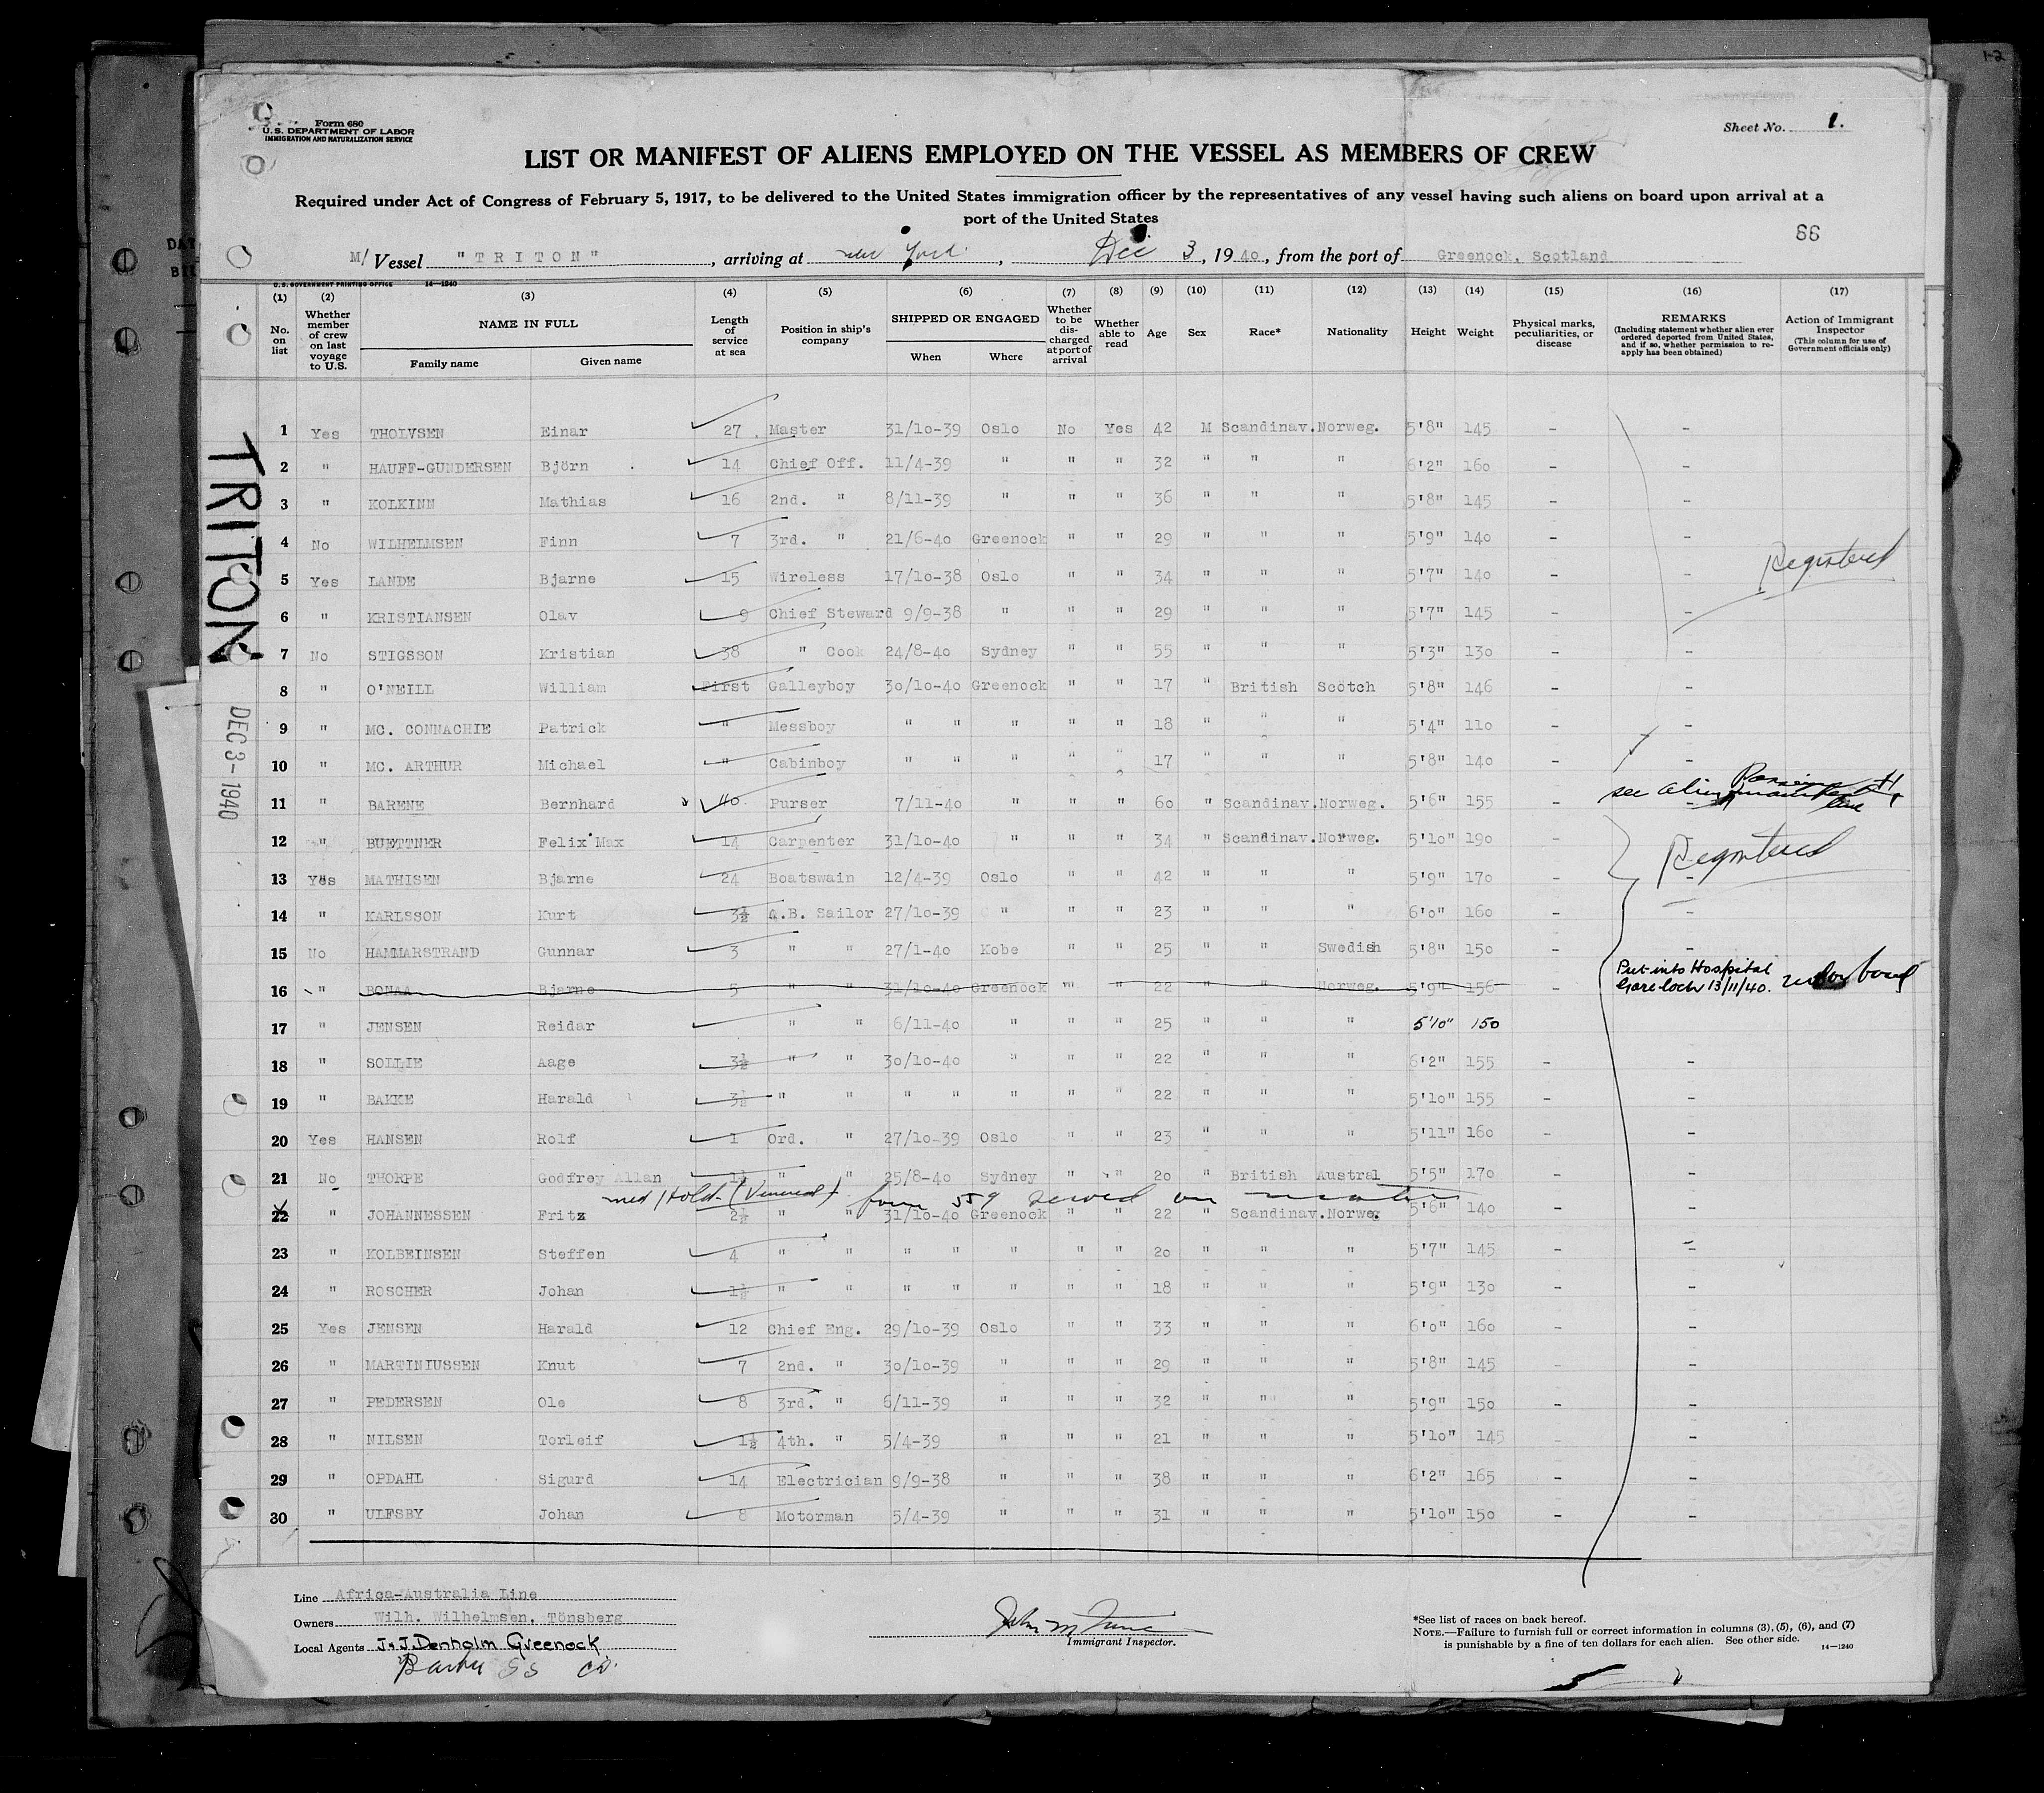 1-2
Form 680
U.S. DEPARTMENT OF LABOR
IMMIGRATION AND NATURALIZATION SERVICE
Sheet No. 1.
LIST OR MANIFEST OF ALIENS EMPLOYED ON THE VESSEL AS MEMBERS OF CREW
Required under Act of Congress of February 5, 1917, to be delivered to the United States immigration officer by the representatives of any vessel having such aliens on board upon arrival at a
port of the United States
88
M/ Vessel "TRITON", arriving at new york, Dec 3, 1940, from the port of Greenock, Scotland
U.S. GOVERNMENT PRINTING OFFICE 14—1240
(1) No. on list
(2) Whether member of crew on last voyage to U.S.
(3) NAME IN FULL Family name Given name
(4) Length of service at sea
(5) Position in ship's company
(6) SHIPPED OR ENGAGED When Where
(7) Whether to be discharged at port of arrival
(8) Whether able to read
(9) Age
(10) Sex
(11) Race*
(12) Nationality
(13) Height
(14) Weight
(15) Physical marks, peculiarities, or disease
(16) REMARKS (Including statement whether alien ever ordered deported from United States, and if so, whether permission to reapply has been obtained)
(17) Action of Immigrant Inspector (This column for use of Government officials only)
TRITON
DEC 3-1940
1 Yes THOLVSEN Einar 27 Master 31/10-39 Oslo No Yes 42 M Scandinav. Norweg. 5'8" 145 - -
2 " HAUFF-GUNDERSEN Björn 14 Chief Off. 11/4-39 " " " 32 " " " 6'2" 160 - -
3 " KOLKINN Mathias 16 2nd. " 8/11-39 " " " 36 " " " 5'8" 145 - -
4 No WILHELMSEN Finn 7 3rd. " 21/6-40 Greenock " " 29 " " " 5'9" 140 - -
Registered
5 Yes LANDE Bjarne 15 Wireless 17/10-38 Oslo " " 34 " " " 5'7" 140 - -
6 " KRISTIANSEN Olav 9 Chief Steward 9/9-38 " " " 29 " " " 5'7" 145 - -
7 No STIGSSON Kristian 38 " Cook 24/8-40 Sydney " " 55 " " " 5'3" 130 - -
8 " O'NEILL William First Galleyboy 30/10-40 Greenock " " 17 " British Scotch 5'8" 146 - -
9 " MC. CONNACHIE Patrick " Messboy " " " " " 18 " " 5'4" 110 - -
10 " MC. ARTHUR Michael " Cabinboy " " " " " 17 " " " 5'8" 140 - -
11 " BARENE Bernhard 40. Purser 7/11-40 " " " 60 " Scandinav. Norweg. 5'6" 155 - see alien
12 " BUETTNER Felix Max 14 Carpenter 31/10-40 " " " 34 " Scandinav. Norweg. 5'10" 190 -
Registered
13 Yes MATHISEN Bjarne 24 Boatswain 12/4-39 Oslo " " 42 " " " 5'9" 170 - -
14 " KARLSSON Kurt 3½ A.B. Sailor 27/10-39 " " " 23 " " " 6'0" 160 - -
15 No HAMMARSTRAND Gunnar 3 " " 27/1-40 Kobe " " 25 " " Swedish 5'8" 150 - -
16 " BONAA Bjarne 5 " " 31/10-40 Greenock " " 22 " " Norweg. 5'9" 156 - Put into Hospital Gareloch 13/11/40. not on board
17 " JENSEN Reidar " " 6/11-40 " " " 25 " " " 5'10" 150
18 " SOLLIE Aage 3½ " " 30/10-40 " " " 22 " " " 6'2" 155 - -
19 " BAKKE Harald 3½ " " " " " " " 22 " " " 5'10" 155 - -
20 Yes HANSEN Rolf 1 Ord. " 27/10-39 Oslo " " 23 " " " 5'11" 160 - -
21 No THORPE Godfrey Allan 1½ " " 25/8-40 Sydney " " 20 " British Austral 5'5" 170 - -
med Hold (Venereal) form 559 served on master
22 " JOHANNESSEN Fritz 2½ " " 31/10-40 Greenock " " 22 " Scandinav. Norweg 5'6" 140 - -
23 " KOLBEINSEN Steffen 4 " " " " " " " 20 " " " 5'7" 145 - -
24 " ROSCHER Johan 1½ " " " " " " " 18 " " " 5'9" 130 - -
25 Yes JENSEN Harald 12 Chief Eng. 29/10-39 Oslo " " 33 " " " 6'0" 160 - -
26 " MARTINIUSSEN Knut 7 2nd. " 30/10-39 " " " 29 " " " 5'8" 145 - -
27 " PEDERSEN Ole 8 3rd. " 6/11-39 " " " 32 " " " 5'9" 150 - -
28 " NILSEN Torleif 1½ 4th. " 5/4-39 " " " 21 " " " 5'10" 145 - -
29 " OPDAHL Sigurd 14 Electrician 9/9-38 " " " 38 " " " 6'2" 165 - -
30 " ULFSBY Johan 8 Motorman 5/4-39 " " " 31 " " " 5'10" 150 - -
Line Africa-Australia Line
Owners Wilh. Wilhelmsen, Tönsberg
Local Agents J.&J. Denholm Greenock
Barber SS Co.
Immigrant Inspector.
*See list of races on back hereof.
NOTE.—Failure to furnish full or correct information in columns (3), (5), (6), and (7)
is punishable by a fine of ten dollars for each alien. See other side.
14—1240